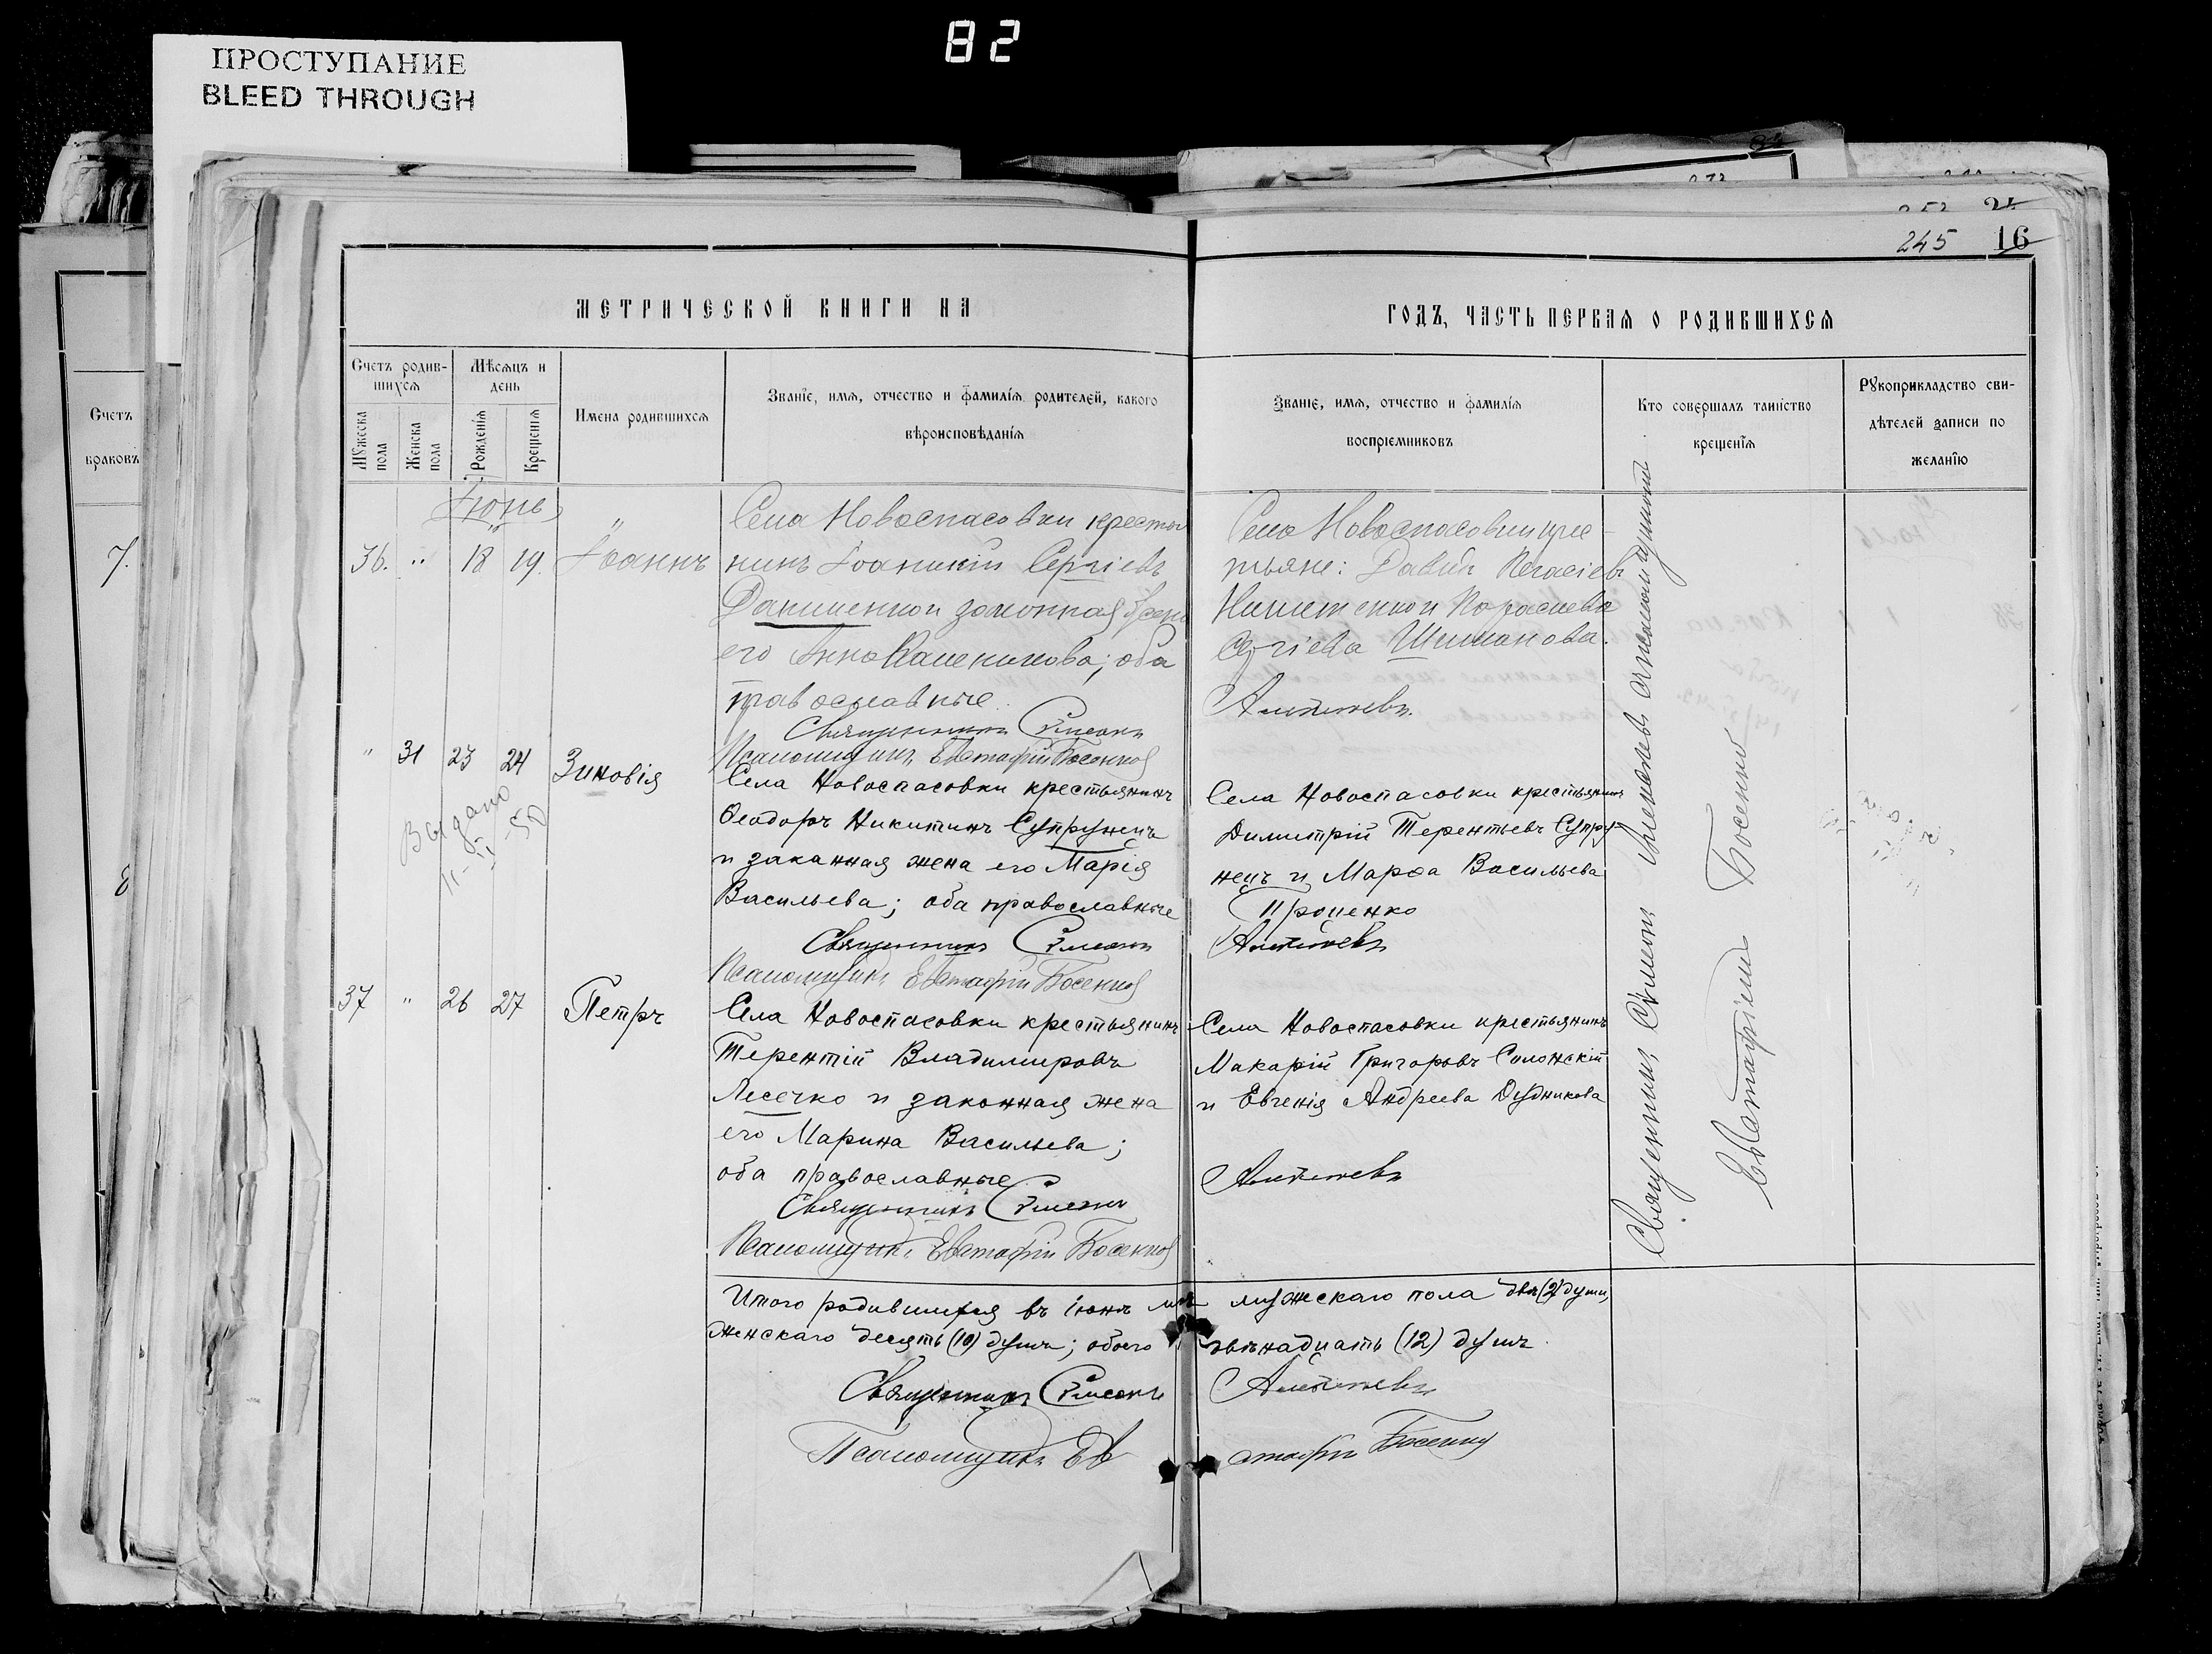 82
ПРОСТУПАНИЕ
BLEED THROUGH
245 16
МЕТРИЧЕСКОЙ КНИГИ НА
ГОДЪ, ЧАСТЬ ПЕРВАЯ О РОДИВШИХСЯ
Счетъ
браковъ
7.
8
Счетъ родив-
шихся
Мужеска пола
Женска пола
Мѣсяцъ и
день
Рожденія
Крещенія
Имена родившихся
Званіе, имя, отчество и фамилія родителей, какого
вѣроисповѣданія
Званіе, имя, отчество и фамилія
воспріемниковъ
Кто совершалъ таинство
крещенія
Рукоприкладство сви-
дѣтелей записи по
желанію
Іюнь
36. " 18 19. Іоаннъ
Села Новоспасовки крестья
нинъ Іоаникій Сергіевъ
и законная жена
его Анна; оба
православные.
Священникъ Симеонъ
Псаломщикъ Евстафій Босенко
Села Новоспасовки крес-
тьяне: Давидъ
и
Сергіева Шишанова.
" 31 23 24 Зиновія
Выдано
11-II-50
Села Новоспасовки крестьянинъ
Ѳеодоръ Никитинъ Супрунецъ
и законная жена его Марія
Васильева; оба православные
Священникъ Симеонъ
Псаломщикъ Евстафій Босенко
Села Новоспасовки крестьянинъ
Димитрій Терентьевъ Супру-
нецъ и Марѳа Васильева
Проценко
37 " 26 27 Петръ
Села Новоспасовки крестьянинъ
Терентій Владимировъ
Лесечко и законная жена
его Марина Васильева;
оба православные
Священникъ Симеонъ
Псаломщикъ Евстафій Босенко
Села Новоспасовки крестьянинъ
Макарій Григорьевъ Солонскій
и Евгенія Андреева Дудникова
Священникъ Симеонъ
Псаломщикъ
Евстафій Босенко
Итого родившихся въ іюнѣ м-цѣ мужскаго пола двѣ (2) души,
женскаго десять (10) душъ; обоего двѣнадцать (12) душъ.
Священникъ Симеонъ
Псаломщикъ Евстафій Босенко